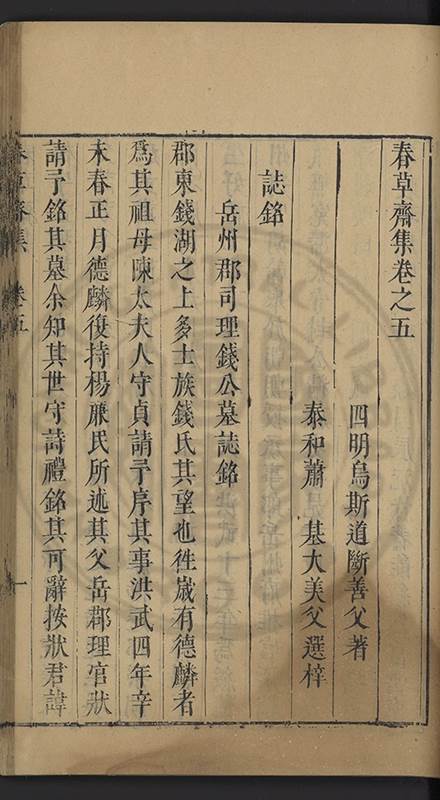 春草齋集卷之五
四明烏斯道斷善父著
泰和蕭基大美父選梓
誌銘
岳州郡司理錢公墓誌銘
郡東錢湖之上多士族錢氏其望也徃嵗有德麟者
爲其祖母陳太夫人守貞請予序其事洪武四年辛
未春正月德麟復持楊㢘氏所述其父岳郡理官狀
請予銘其墓余知其世守詩禮銘其可辭按狀君諱
春草齋集 卷五 一